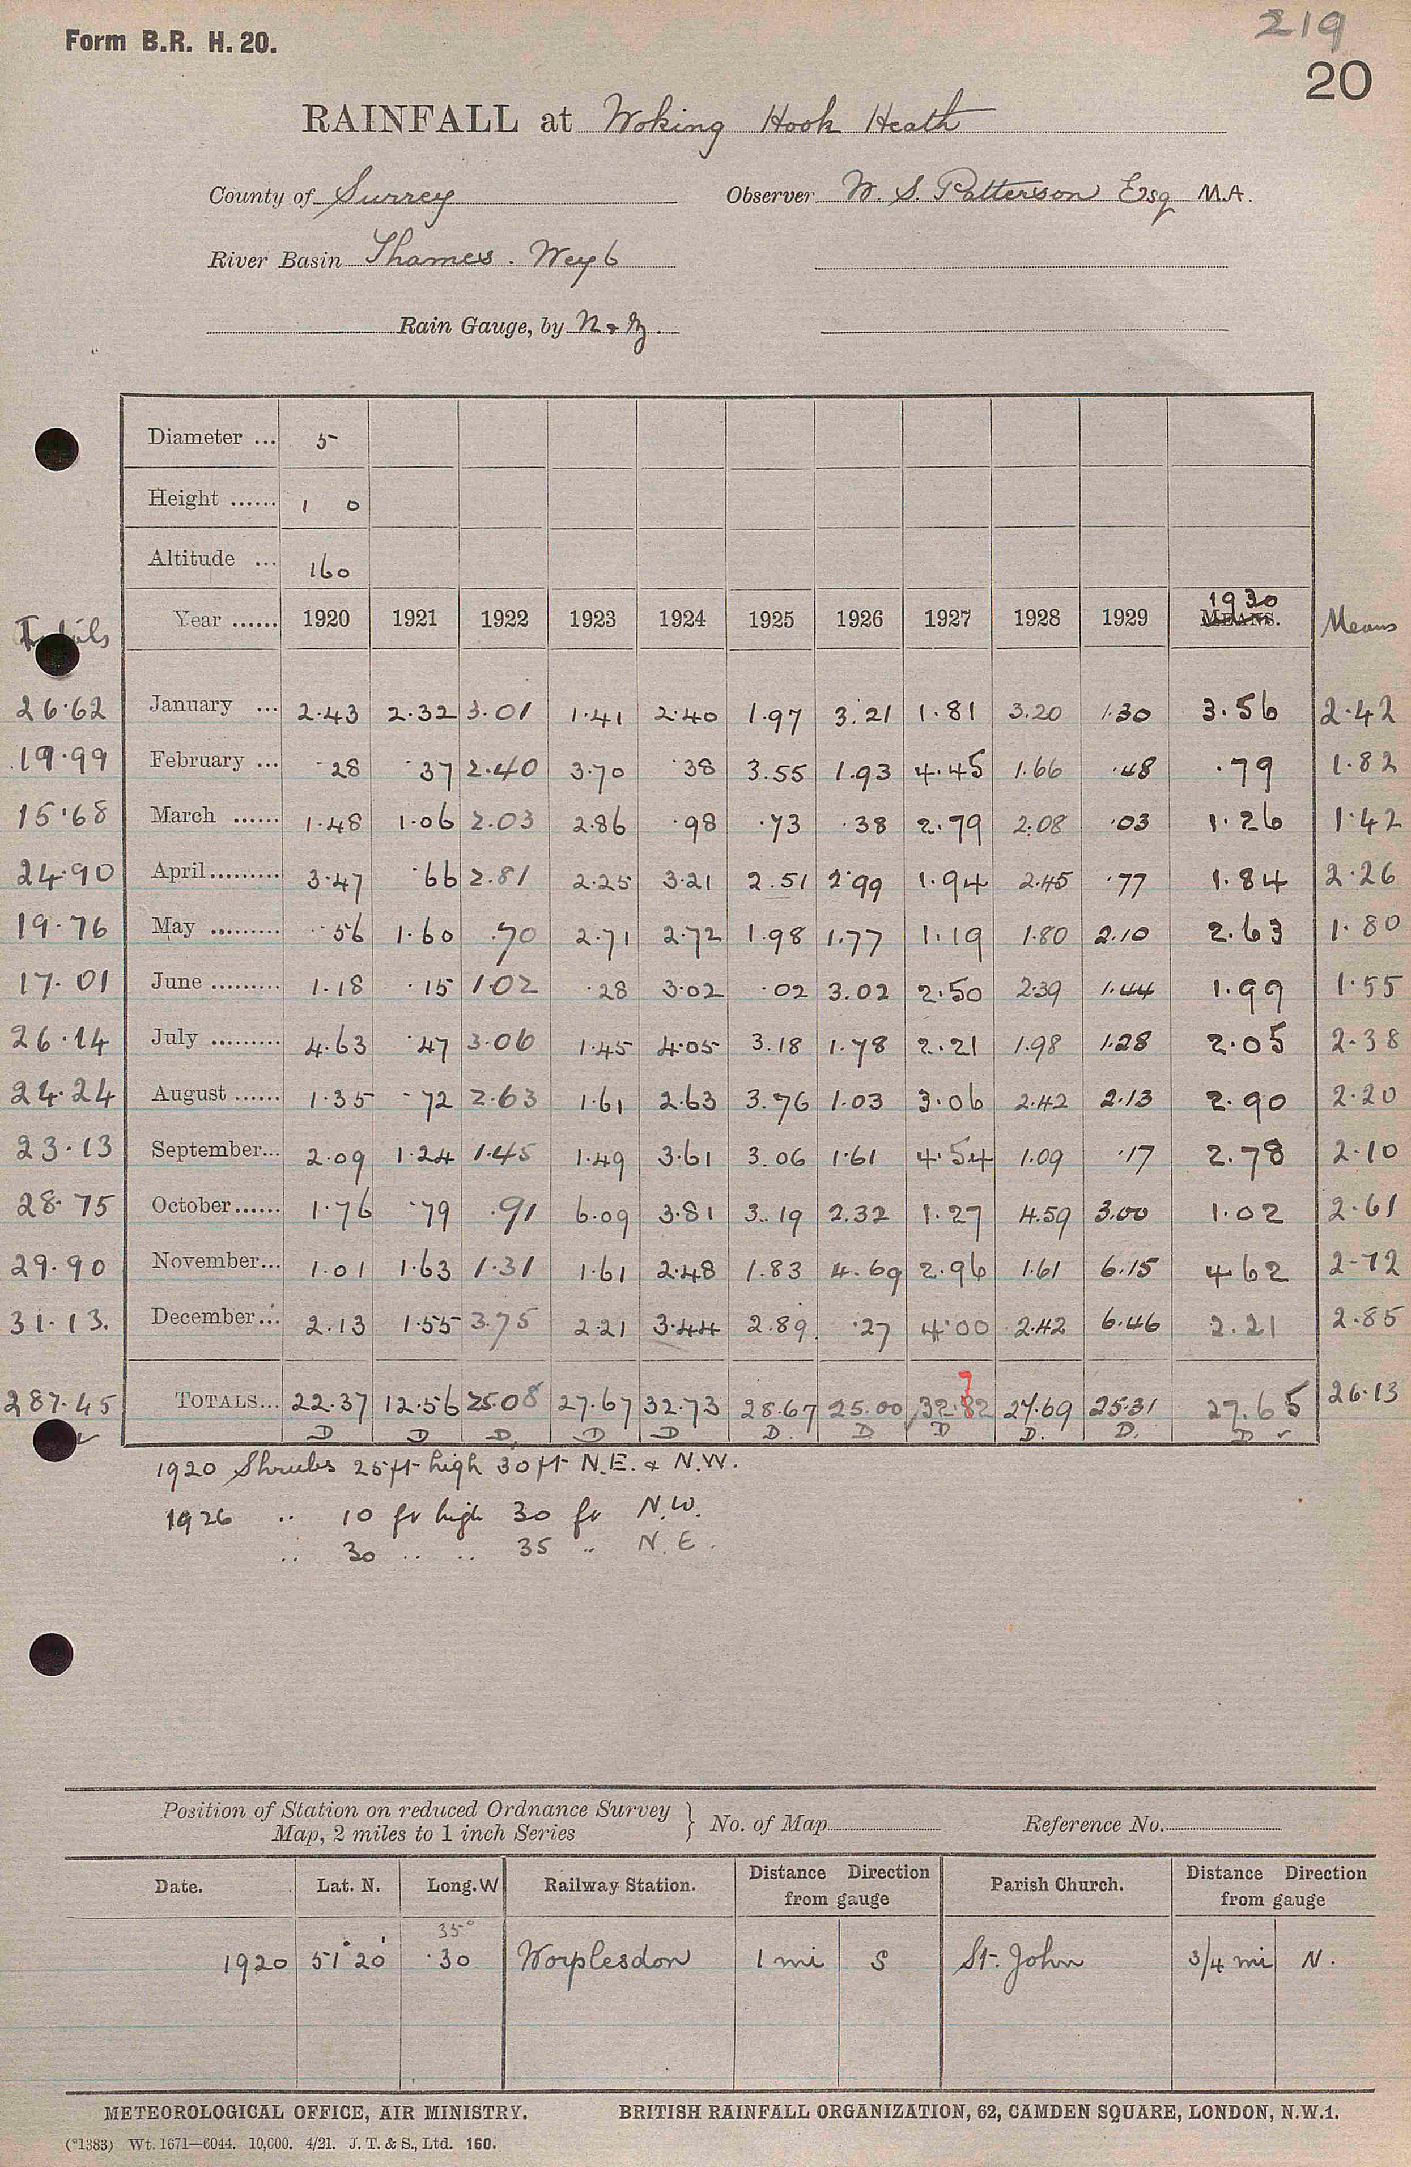 219
Form B.R. H. 20.
20
RAINFALL at Woking Hook Heath
County of Surrey Observer W. S. Patterson Esq M.A.
River Basin Thames. Wey 6
Rain Gauge, by N & Z.
Diameter ... 5
Height ...... 1 0
Altitude ... 160
Totals Year ...... 1920 1921 1922 1923 1924 1925 1926 1927 1928 1929 1930 MEANS. Means
26.62 January ... 2.43 2.32 3.01 1.41 2.40 1.97 3.21 1.81 3.20 1.30 3.56 2.42
19.99 February ... .28 .37 2.40 3.70 .38 3.55 1.93 4.45 1.66 .48 .79 1.82
15.68 March ...... 1.48 1.06 2.03 2.86 .98 .73 .38 2.79 2.08 .03 1.26 1.42
24.90 April ......... 3.47 .66 2.81 2.25 3.21 2.51 2.99 1.94 2.45 .77 1.84 2.26
19.76 May ......... .56 1.60 .70 2.71 2.72 1.98 1.77 1.19 1.80 2.10 2.63 1.80
17.01 June ......... 1.18 .15 1.02 .28 3.02 .02 3.02 2.50 2.39 1.44 1.99 1.55
26.14 July ......... 4.63 .47 3.06 1.45 4.05 3.18 1.78 2.21 1.98 1.28 2.05 2.38
24.24 August ...... 1.35 .72 2.63 1.61 2.63 3.76 1.03 3.06 2.42 2.13 2.90 2.20
23.13 September... 2.09 1.24 1.45 1.49 3.61 3.06 1.61 4.54 1.09 .17 2.78 2.10
28.75 October ...... 1.76 .79 .91 6.09 3.81 3.19 2.32 1.27 4.59 3.00 1.02 2.61
29.90 November... 1.01 1.63 1.31 1.61 2.48 1.83 4.69 2.96 1.61 6.15 4.62 2.72
31.13. December... 2.13 1.55 3.75 2.21 3.44 2.89 .27 4.00 2.42 6.46 2.21 2.85
7
287.45 TOTALS... 22.37 12.56 25.08 27.67 32.73 28.67 25.00 32.82 27.69 25.31 27.65 26.13
D D D D D D. D D D. D. D
1920 Shrubs 25 ft high 30 ft N.E. & N.W.
1926 .. 10 ft high 30 ft N.W.
.. 30 .. .. 35 .. N.E.
Position of Station on reduced Ordnance Survey
Map, 2 miles to 1 inch Series } No. of Map Reference No.
Date. Lat. N. Long. W Railway Station. Distance Direction from gauge Parish Church. Distance Direction from gauge
35°
1920 51° 20' .30 Worplesdon 1 mi S St. John 3/4 mi N.
METEOROLOGICAL OFFICE, AIR MINISTRY. BRITISH RAINFALL ORGANIZATION, 62, CAMDEN SQUARE, LONDON, N.W.1.
(*1383) Wt. 1671—6044. 10,000. 4/21. J. T. & S., Ltd. 160.